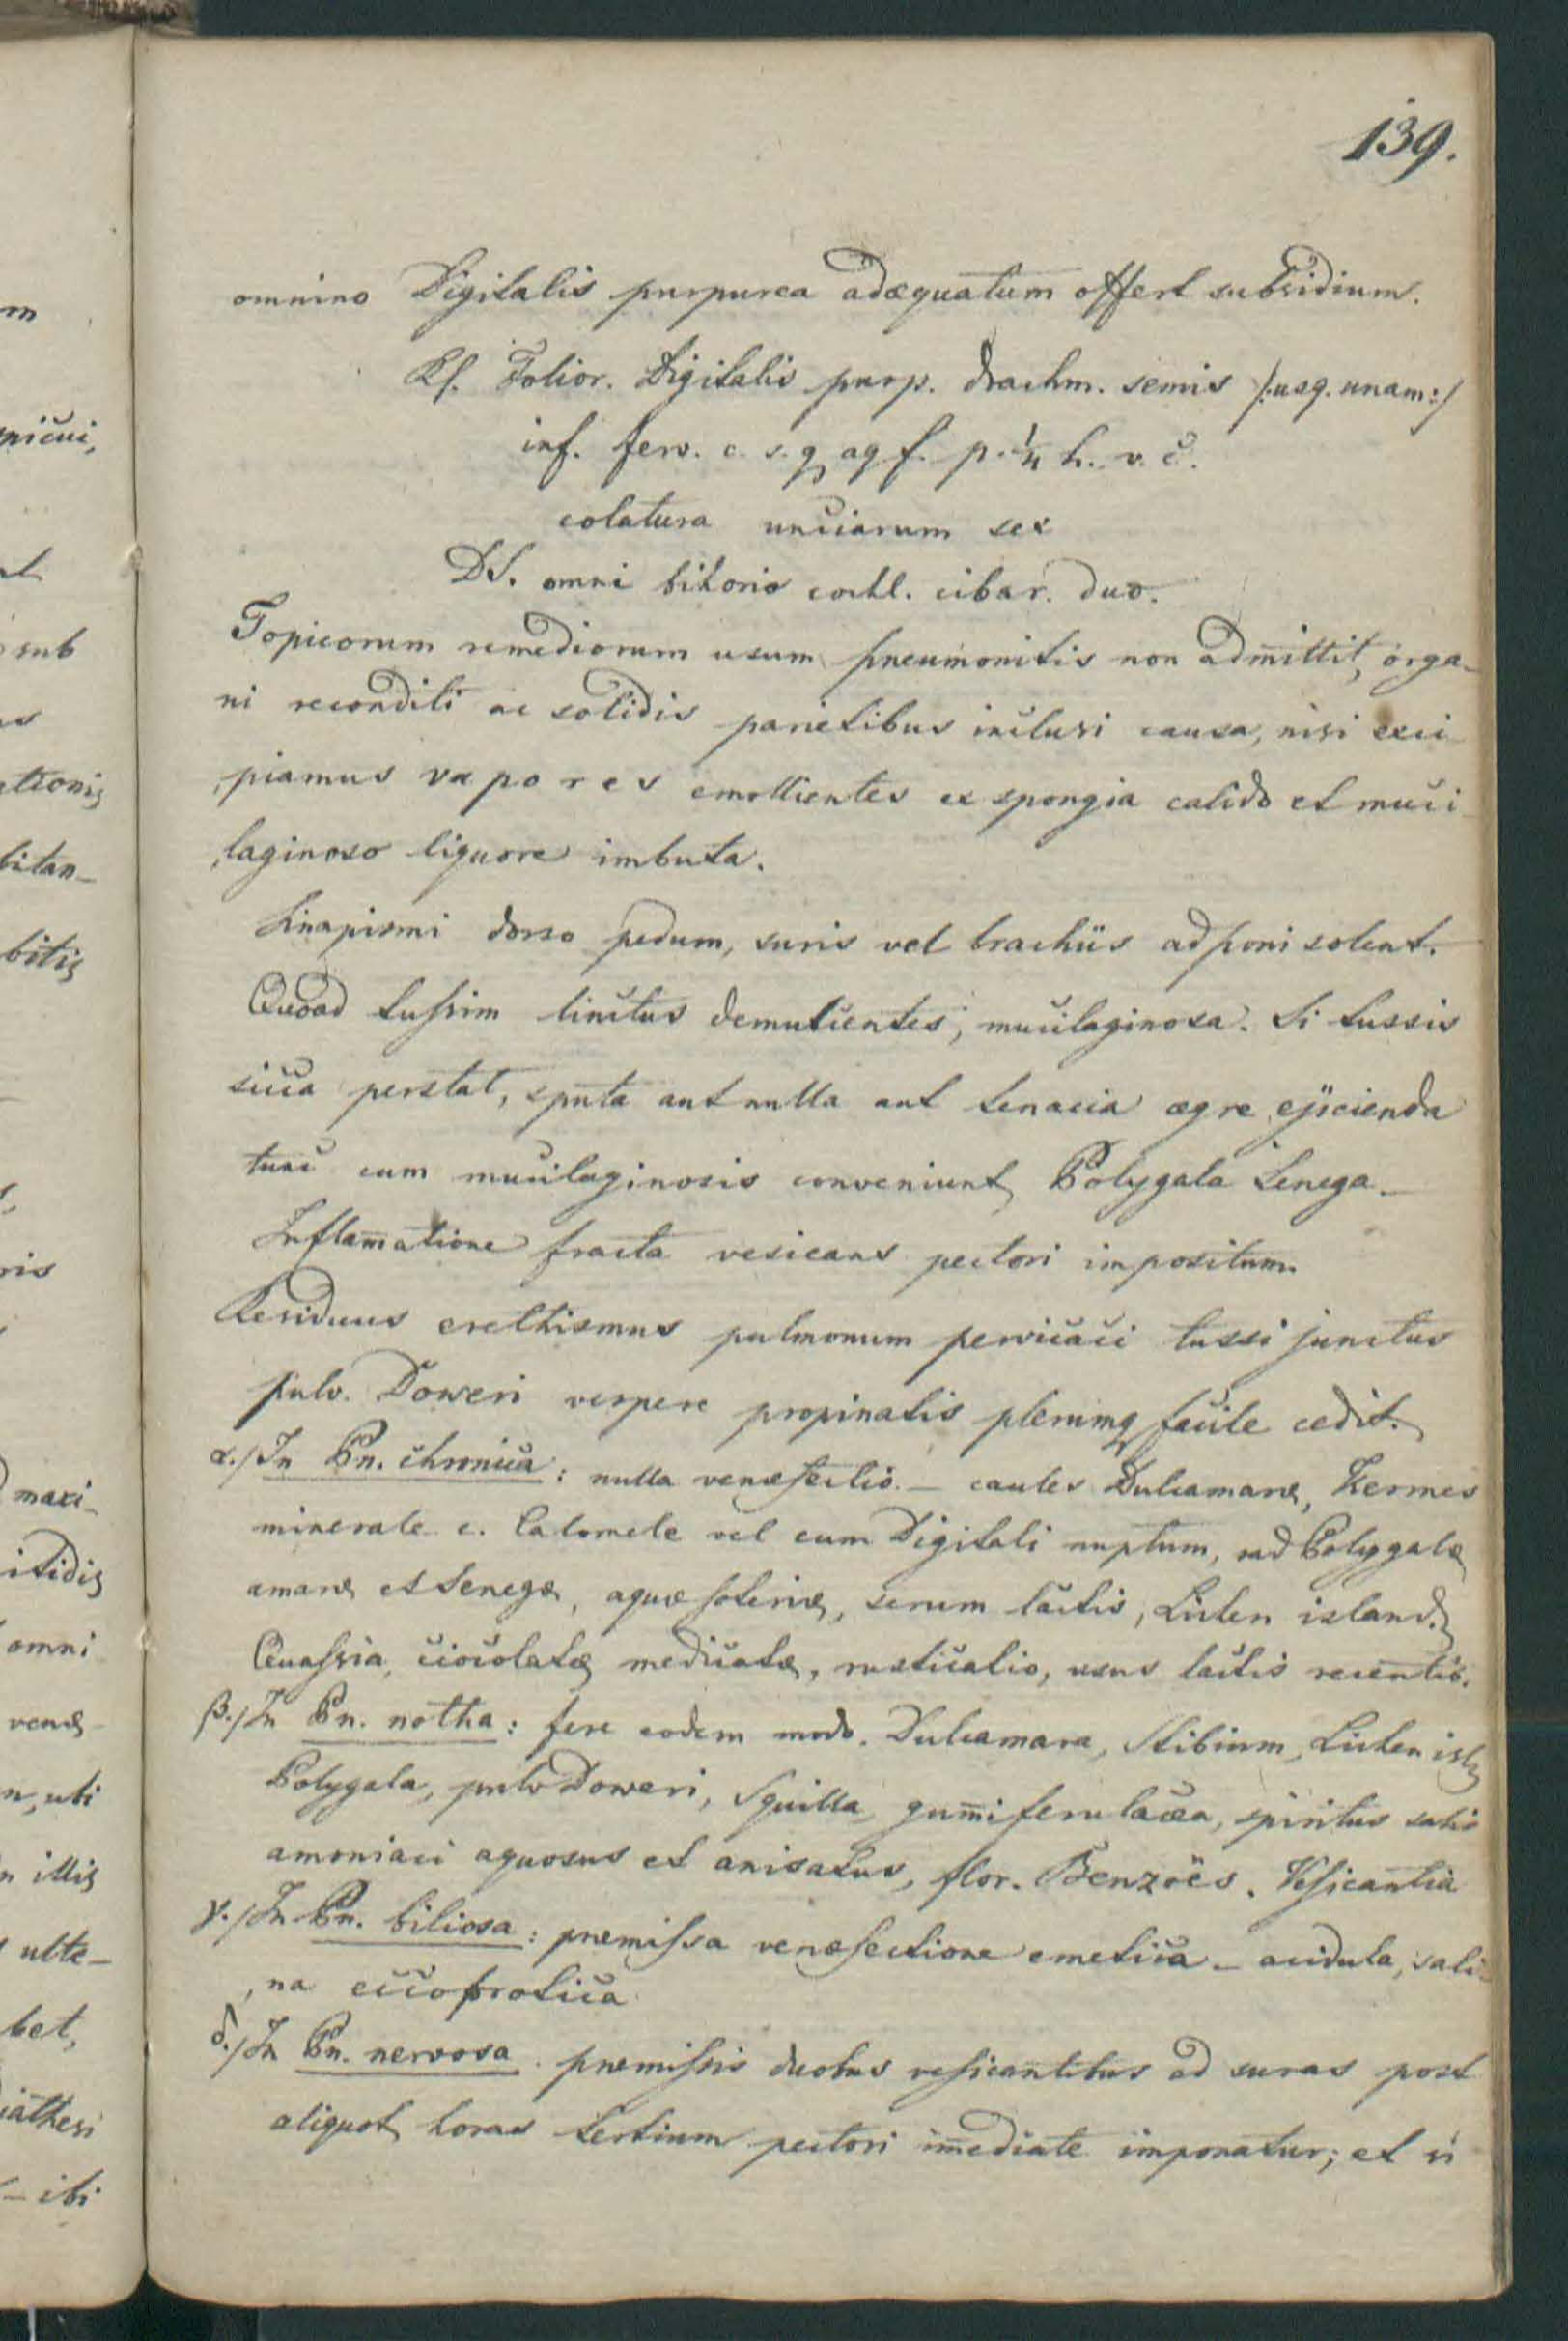 139.
omnino Digitalis purpurea adæquatum offert subsidium.
Rp. Folior. Digitalis purp. drachm. semis /:usq. unam:/
inf. ferv. c. s. q. aq f. p. 1/4 h. v. c.
colatura unciarum sex
DS. omni bihorio cochl. cibar. duo.
Topicorum remediorum usum pneumonitis non admittit, orga-
ni reconditi ac solidis parietibus inclusi causa, nisi exci-
piamus vapores emollientes ex spongia calido et muci-
laginoso liquore imbuta.
Sinapismi dorso pedum, suris vel brachiis adponi solent.
Quoad tussim linctus demulcentes, mucilaginosa. Si tussis
sicca perstat, sputa aut nulla aut tenacia ægre ejicienda
tunc cum mucilaginosis conveniunt Polygala Senega.
Inflam̄atione fracta vesicans pectori impositum.
Residuus erethismus pulmonum pervicaci tussi junctus
pulv. Doweri vespere propinatis plerumq facile cedit.
α./ In Pn. chronica: nulla venæsectio. – caules Dulcamaræ, Kermes
minerale c. Calomele vel cum Digitali nuptum, rad Polygalæ
amaræ et Senegæ, aquæ soteriæ, serum lactis, Lichen island.
Quassia, ciocolatæ medicatæ, rusticatio, usus lactis recentis.
β./ In Pn. notha: fere eodem modo. Dulcamara, Stibium, Lichen isl.
Polygala, pulv Doweri, Squilla, gum̄i ferulacea, spiritus salis
amoniaci aquosus et anisatus, flor. Benzoës. Vesicantia
γ./ In Pn. biliosa: præmissa venæsectione emetica – acidula, sali-
na eccoprotica
δ./ In Pn. nervosa. præmissis duobus vesicantibus ad suras post
aliquot horas tertium pectori im̄ediate imponatur; et si